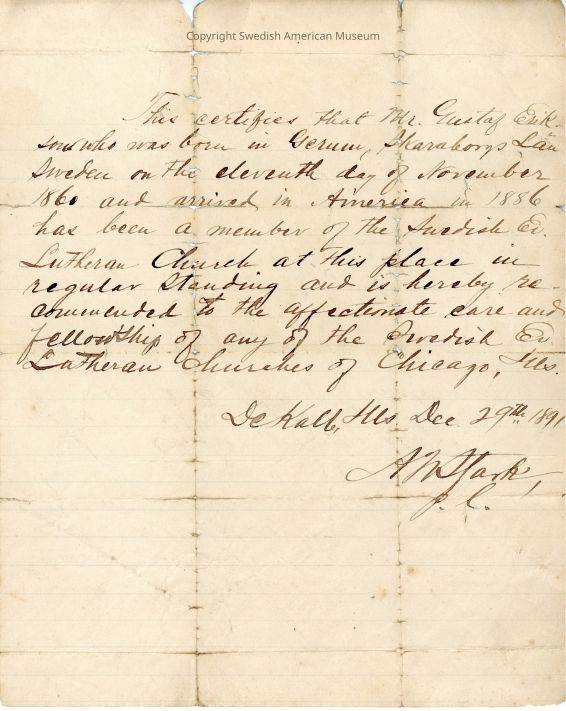 Copyright Swedish American Museum
This certifies that Mr. Gustaf Erik-
son who was born in Gerum, Skaraborgs Län
Sweden on the eleventh day of November
1860 and arrived in America in 1886
has been a member of the Swedish Ev.
Lutheran Church at this place in
regular standing and is hereby re-
commended to the affectionate care and
fellowship of any of the Swedish Ev
Lutheran Churches of Chicago, Ills.
DeKalb, Ills Dec. 29th 1891
A W Stark,
P. C.